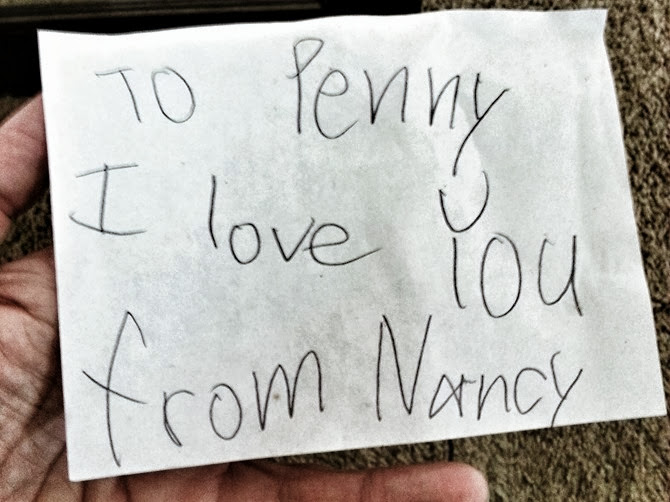 TO Penny
I love You
from Nancy